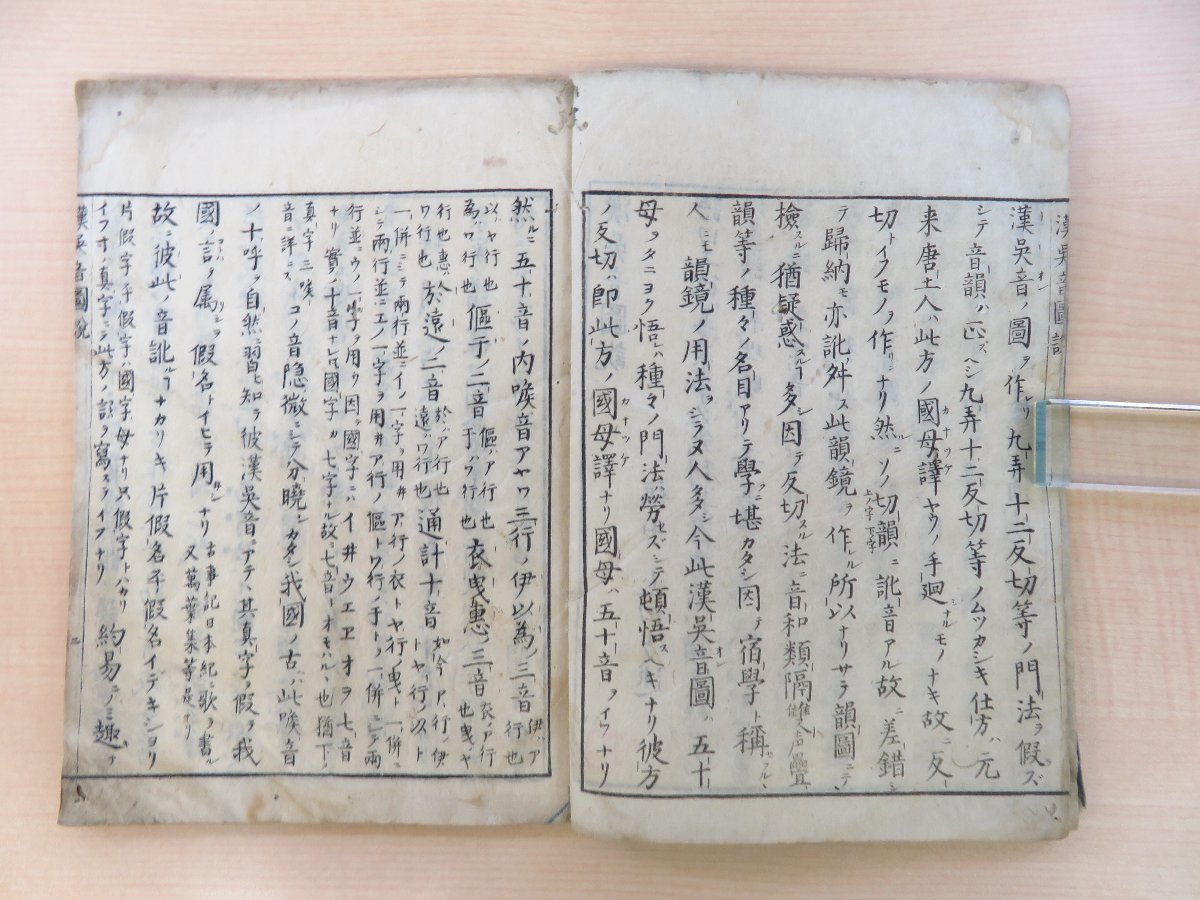 漢吳音圖說
漢吳音ノ圖ヲ作レリ九弄十二反切等ノ門法ヲ假ズ
シテ音韻ハ正スヘシ九弄十二反切等ノムツカシキ仕方ハ元
来唐土人ハ此方ノ國母譯ヤウノ手廻シナルモノナキ故ニ反
切トイフモノヲ作リシナリ然ルニソノ切韻ニ訛音アル故ニ差錯シ
テ歸納モ亦訛舛ス此韻鏡ヲ作ル所以ナリサラ韻圖ニテ
撿スルニ猶疑惑スルヿ多シ因テ反切スル法ニ音和類隔
韻等ノ種々ノ名目アリテ學ニ堪カタシ因テ宿學ト稱スル
人ニモ韻鏡ノ用法ヲシラヌ人多シ今此漢吳音圖ハ五十
母ヲタニヨク悟レハ種々ノ門法ハ勞セズシテ頓悟スヘキナリ彼方
ノ反切ハ即此方ノ國母譯ナリ國母ハ五十音ヲイフナリ
然ルニ五十音ノ内喉音アヤワ三行ノ伊以為ノ三音伊ハア行也
以ハヤ行也為ハワ行也傴于ノ二音傴ハア行也于ハワ行也衣曳惠三音衣ハア行也曳ハヤ
行也惠ハワ行也於遠ノ二音於ハア行也遠ハワ行也通計十音如今ア行ノ伊トヤ行ノ以ト
一併ニシテ兩行並ニイノ一字ヲ用井ア行ノ衣トヤ行ノ曳ト一併ニ
シテ兩行並ニエノ一字ヲ用井ア行ノ傴トワ行ノ于ト一併ニシテ兩
行並ニウノ一字ヲ用ウ因テ國字ニハイ井ウエヱオヲ七音
ナリ實ノ十音ナレトモ國字カ七字ナル故ニ七音トオモハルヽ也猶下ノ
真字三喉音ニ詳ニスコノ音隐微ニシテ分曉シカタシ我國ノ古ハ此喉音
ノ十呼ノ自然ニ習ヒ知ラ彼漢吳音ニアテヽ其真字ヲ假ヲ我
國言ノ属ヲ假名トイヒテ用シナリ古事記日本紀ノ歌ノ書ル又萬葉集等是ナリ
故ニ彼此ノ音訛ルヿナカリキ片假名平假名イデキショリ
片假字平假字ハ國字母ナリ只假字トハカリイフオハ真字ニテ此方ノ語ヲ寫スヲイフナリ約易ニノミ趣テ
漢吳音圖說
二